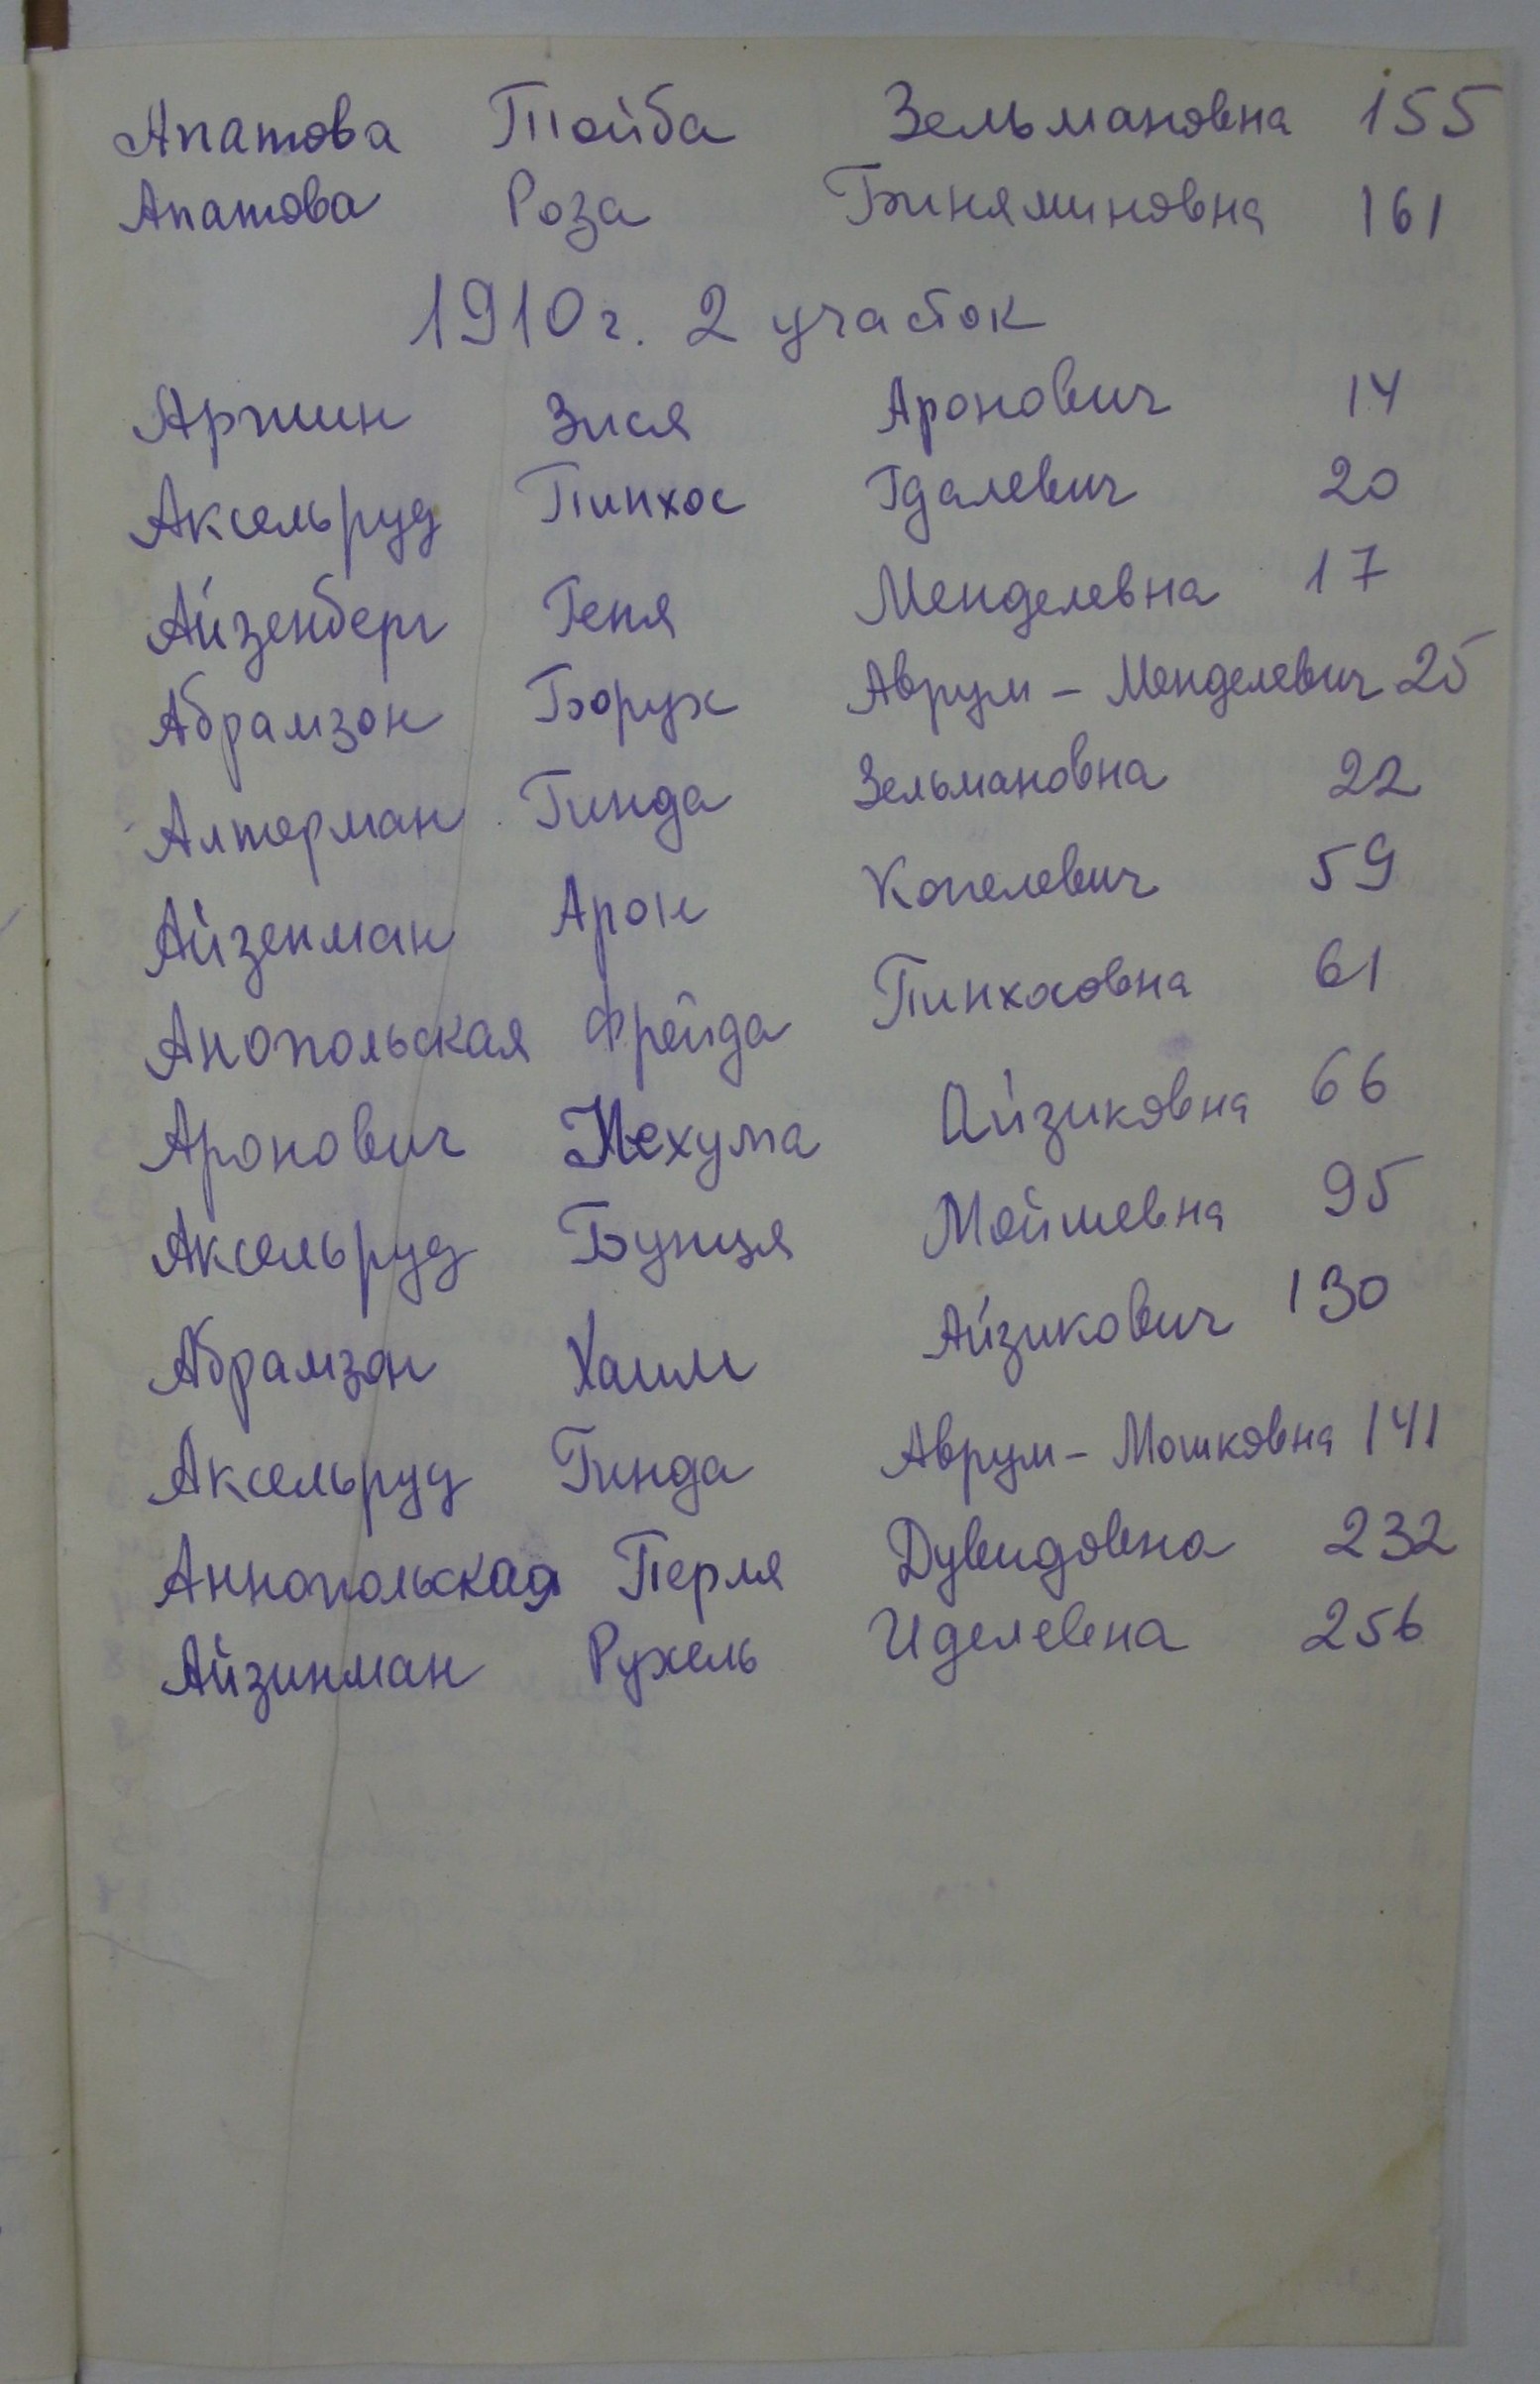 Апатова Тойба Зельмановна 155
Апатова Роза Биняминовна 161
1910 г. 2 участок
Зися Аронович 14
Аксельруд Пинхос Гдалевич 20
Айзенберг Геня Менделевна 17
Абрамзон Борух Аврум - Менделевич 25
Алтерман Гинда Зельмановна 22
Айзенман Арон Копелевич 59
Анопольская Фрейда Пинхосовна 61
Аронович Нехума Айзиковна 66
Аксельруд Бунця Мойшевна 95
Абрамзон Хаим Айзикович 130
Аксельруд Гинда Аврум - Мошковна 141
Аннопольская Перля Дувидовна 232
Айзинман Рухель Иделевна 256